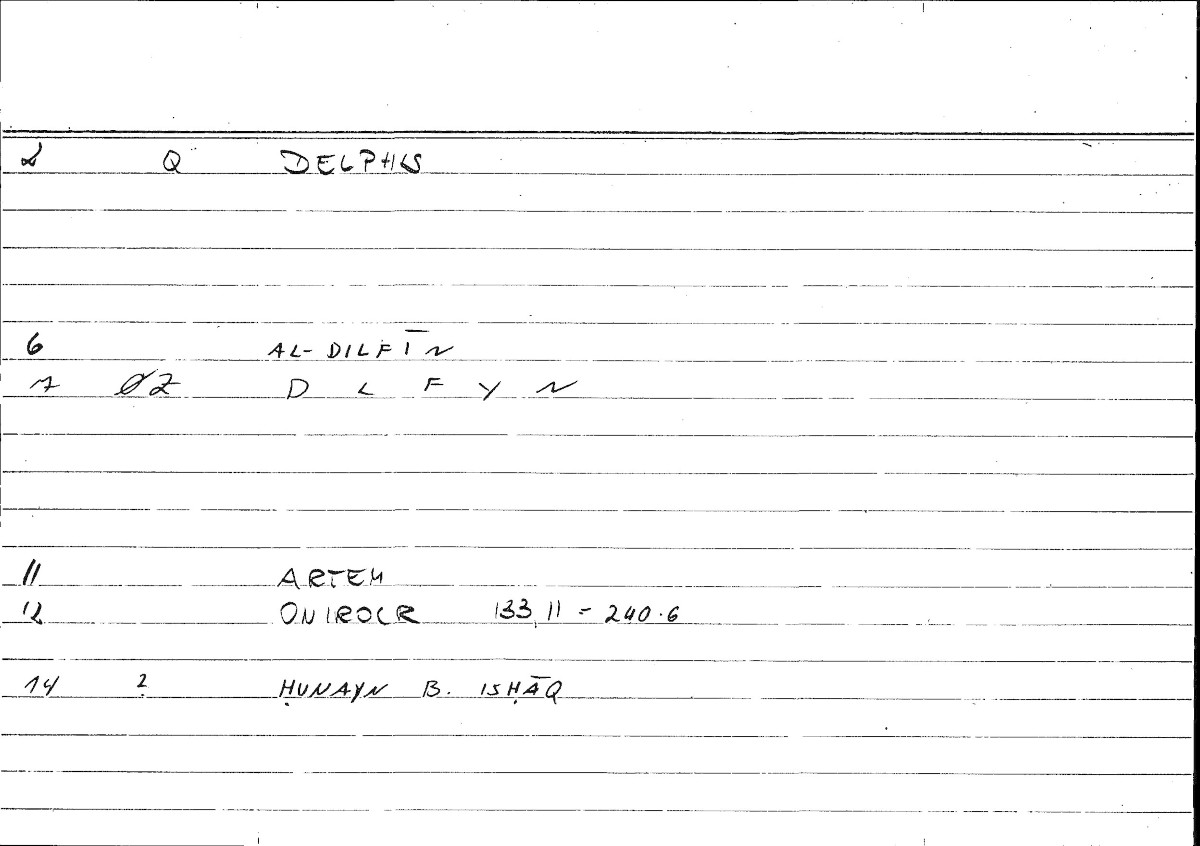 2 Q DELPHIS
6 AL-DILFĪN
7 ØZ D L F Y N
11 ARTEM
12 ONIROCR 133,11 = 240.6
14 ? ḤUNAYN B. ISḤĀQ